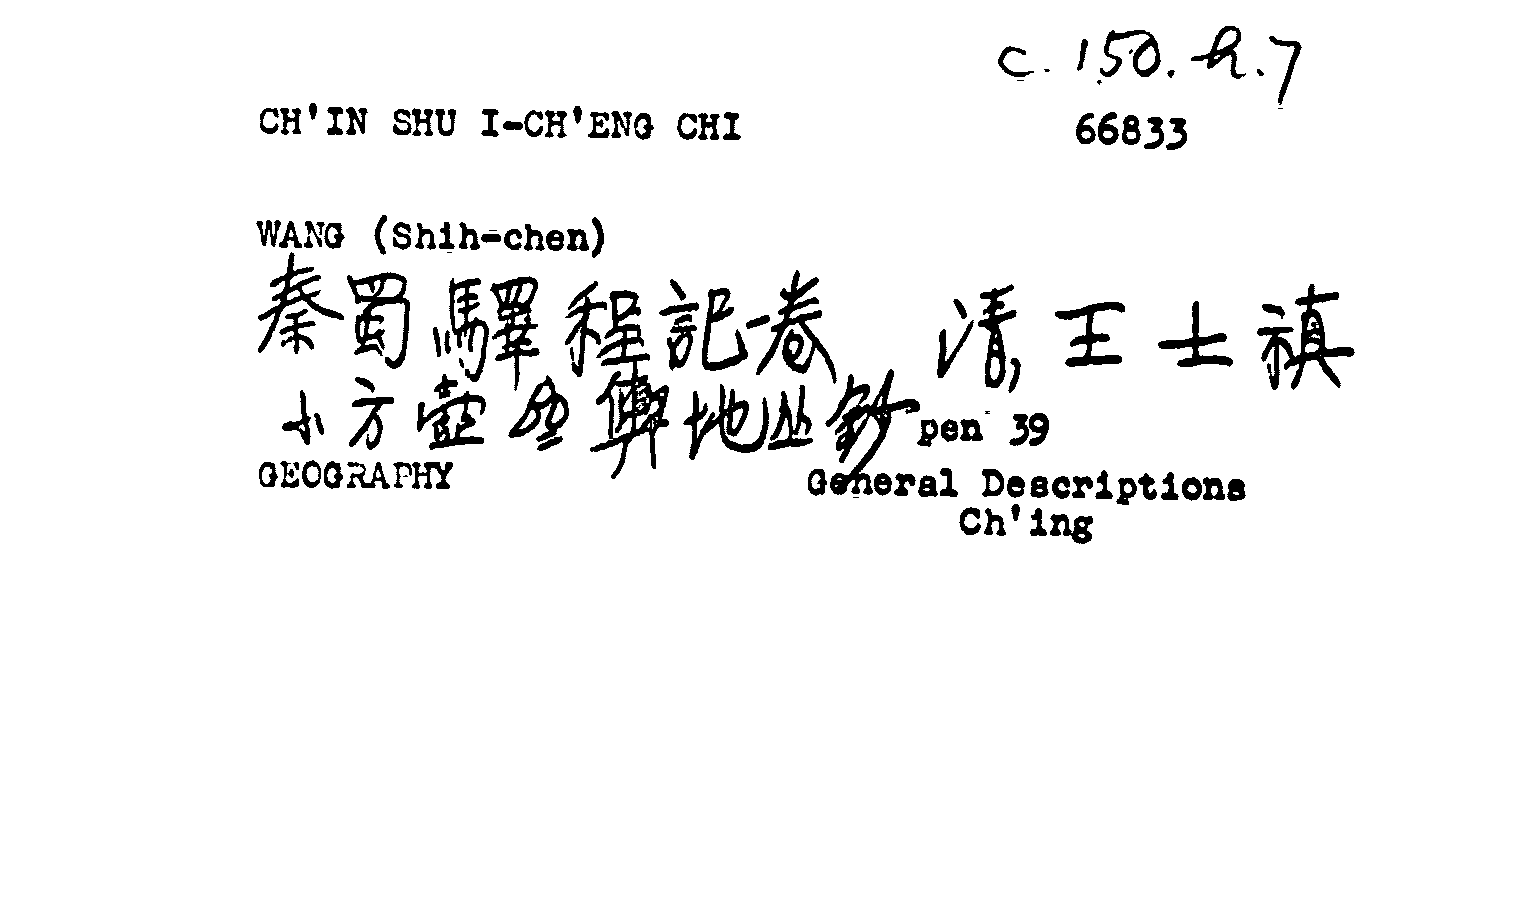 c. 150. h. 7
CH'IN SHU I-CH'ENG CHI 66833
WANG (Shih-chen)
秦蜀驛程記一卷 清, 王士禛
小方壺齋輿地丛鈔 pen 39
GEOGRAPHY General Descriptions
Ch'ing